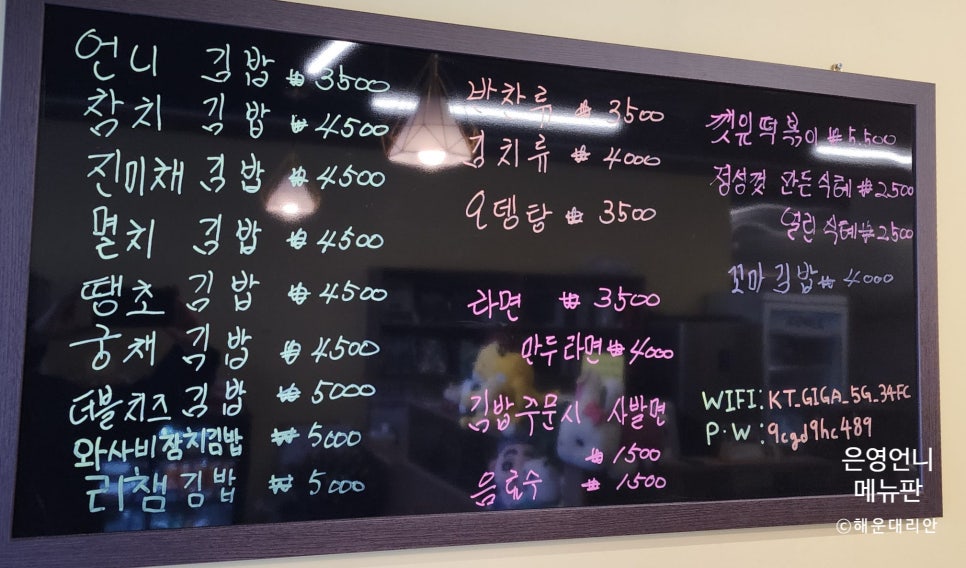 언니 김밥 ₩3500
참치 김밥 ₩4500
진미채 김밥 ₩4500
멸치 김밥 ₩4500
땡초 김밥 ₩4500
궁채 김밥 ₩4500
더블치즈 김밥 ₩5000
와사비참치김밥 ₩5000
리챔 김밥 ₩5000
반찬류 ₩3500
김치류 ₩4000
오뎅탕 ₩3500
라면 ₩3500
만두라면 ₩4000
김밥주문시 사발면
₩1500
음료수 ₩1500
깻잎떡볶이 ₩5,500
정성껏 만든식혜 ₩2,500
얼린 식혜 ₩2,500
꼬마김밥 ₩4000
WIFI: KT_GIGA_5G_34FC
P.W: 9cgd9hc489
은영언니
메뉴판
©해운대리안